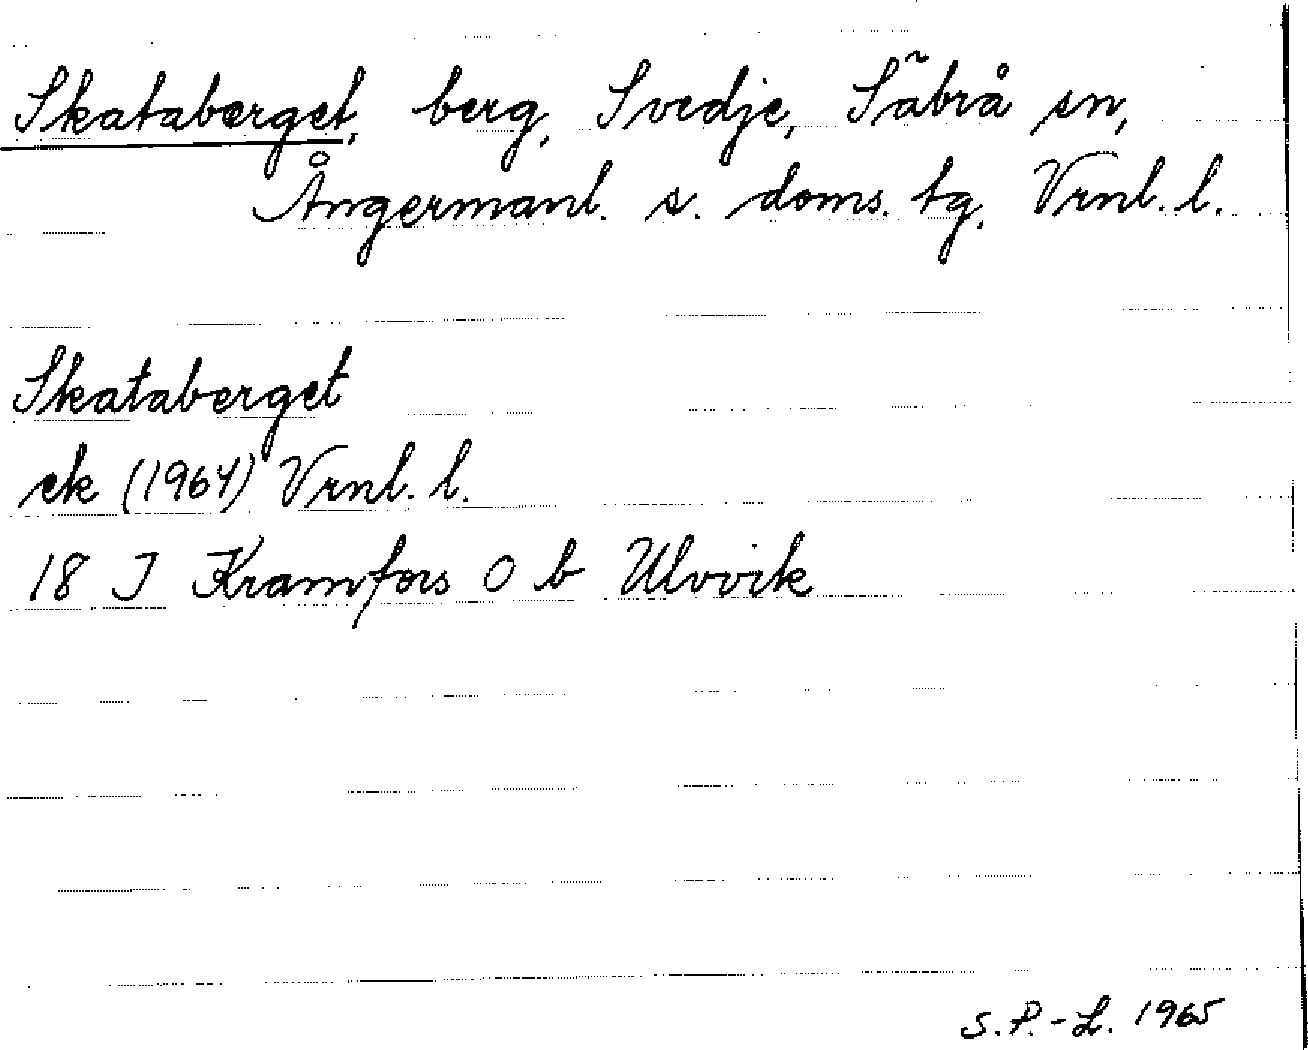 Skataberget, berg, Svedje, Säbrå sn,
Ångermanl. s. doms. tg, Vrnl. l.
Skataberget
ek (1964) Vrnl. l.
18 I Kramfors O b Ulvvik
S.P.-L. 1965